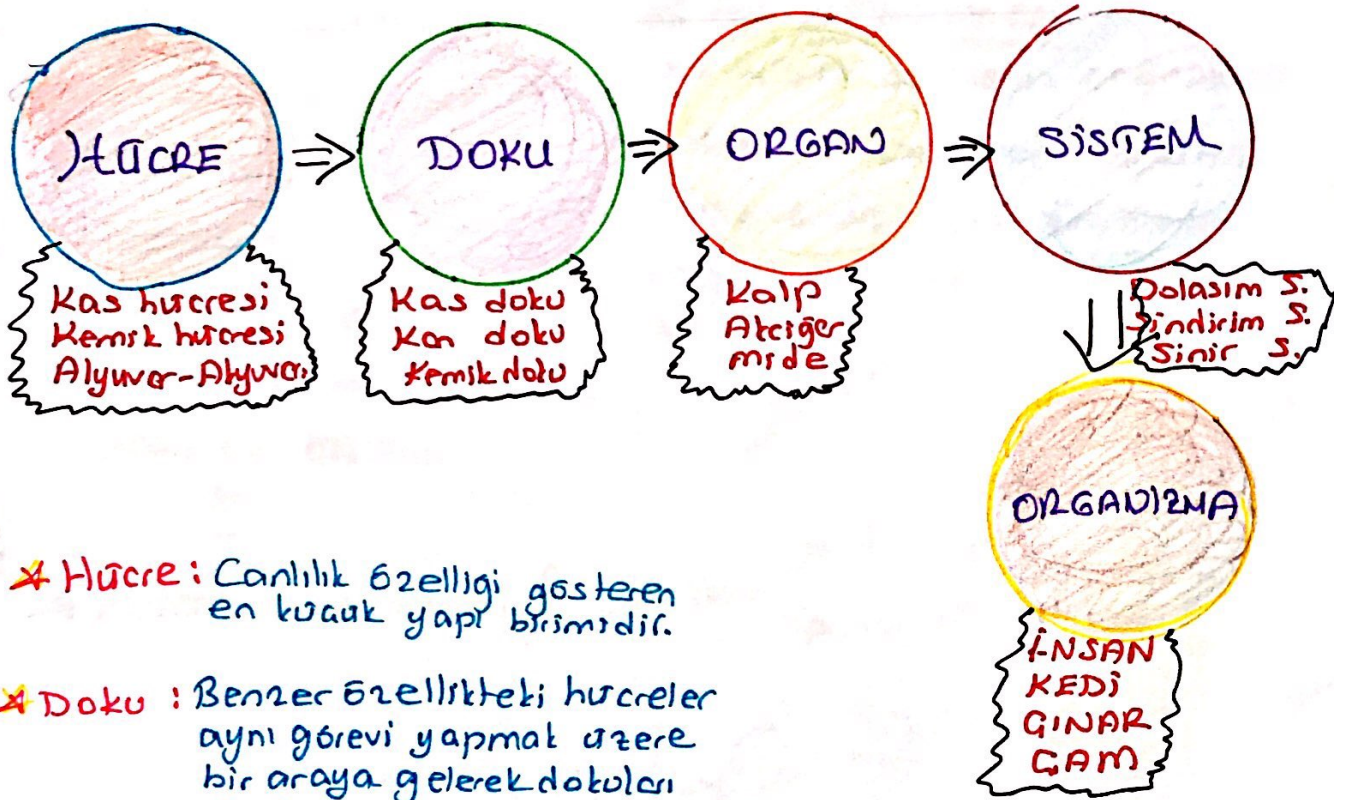 HÜCRE
DOKU
ORGAN
SİSTEM
Kas hücresi
Kemik hücresi
Alyuvar-Akyuvar
Kas doku
Kan doku
Kemik doku
Kalp
Akciğer
mide
Dolaşım S.
Sindirim S.
Sinir S.
ORGANİZMA
İNSAN
KEDİ
ÇINAR
ÇAM
Hücre: Canlılık özelliği gösteren
en küçük yapı birimidir.
Doku : Benzer özellikteki hücreler
aynı görevi yapmak üzere
bir araya gelerek dokuları